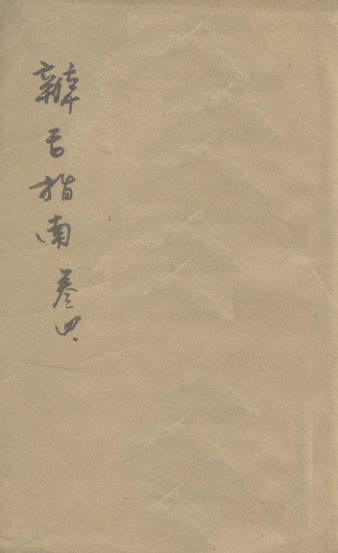 辨舌指南 卷四